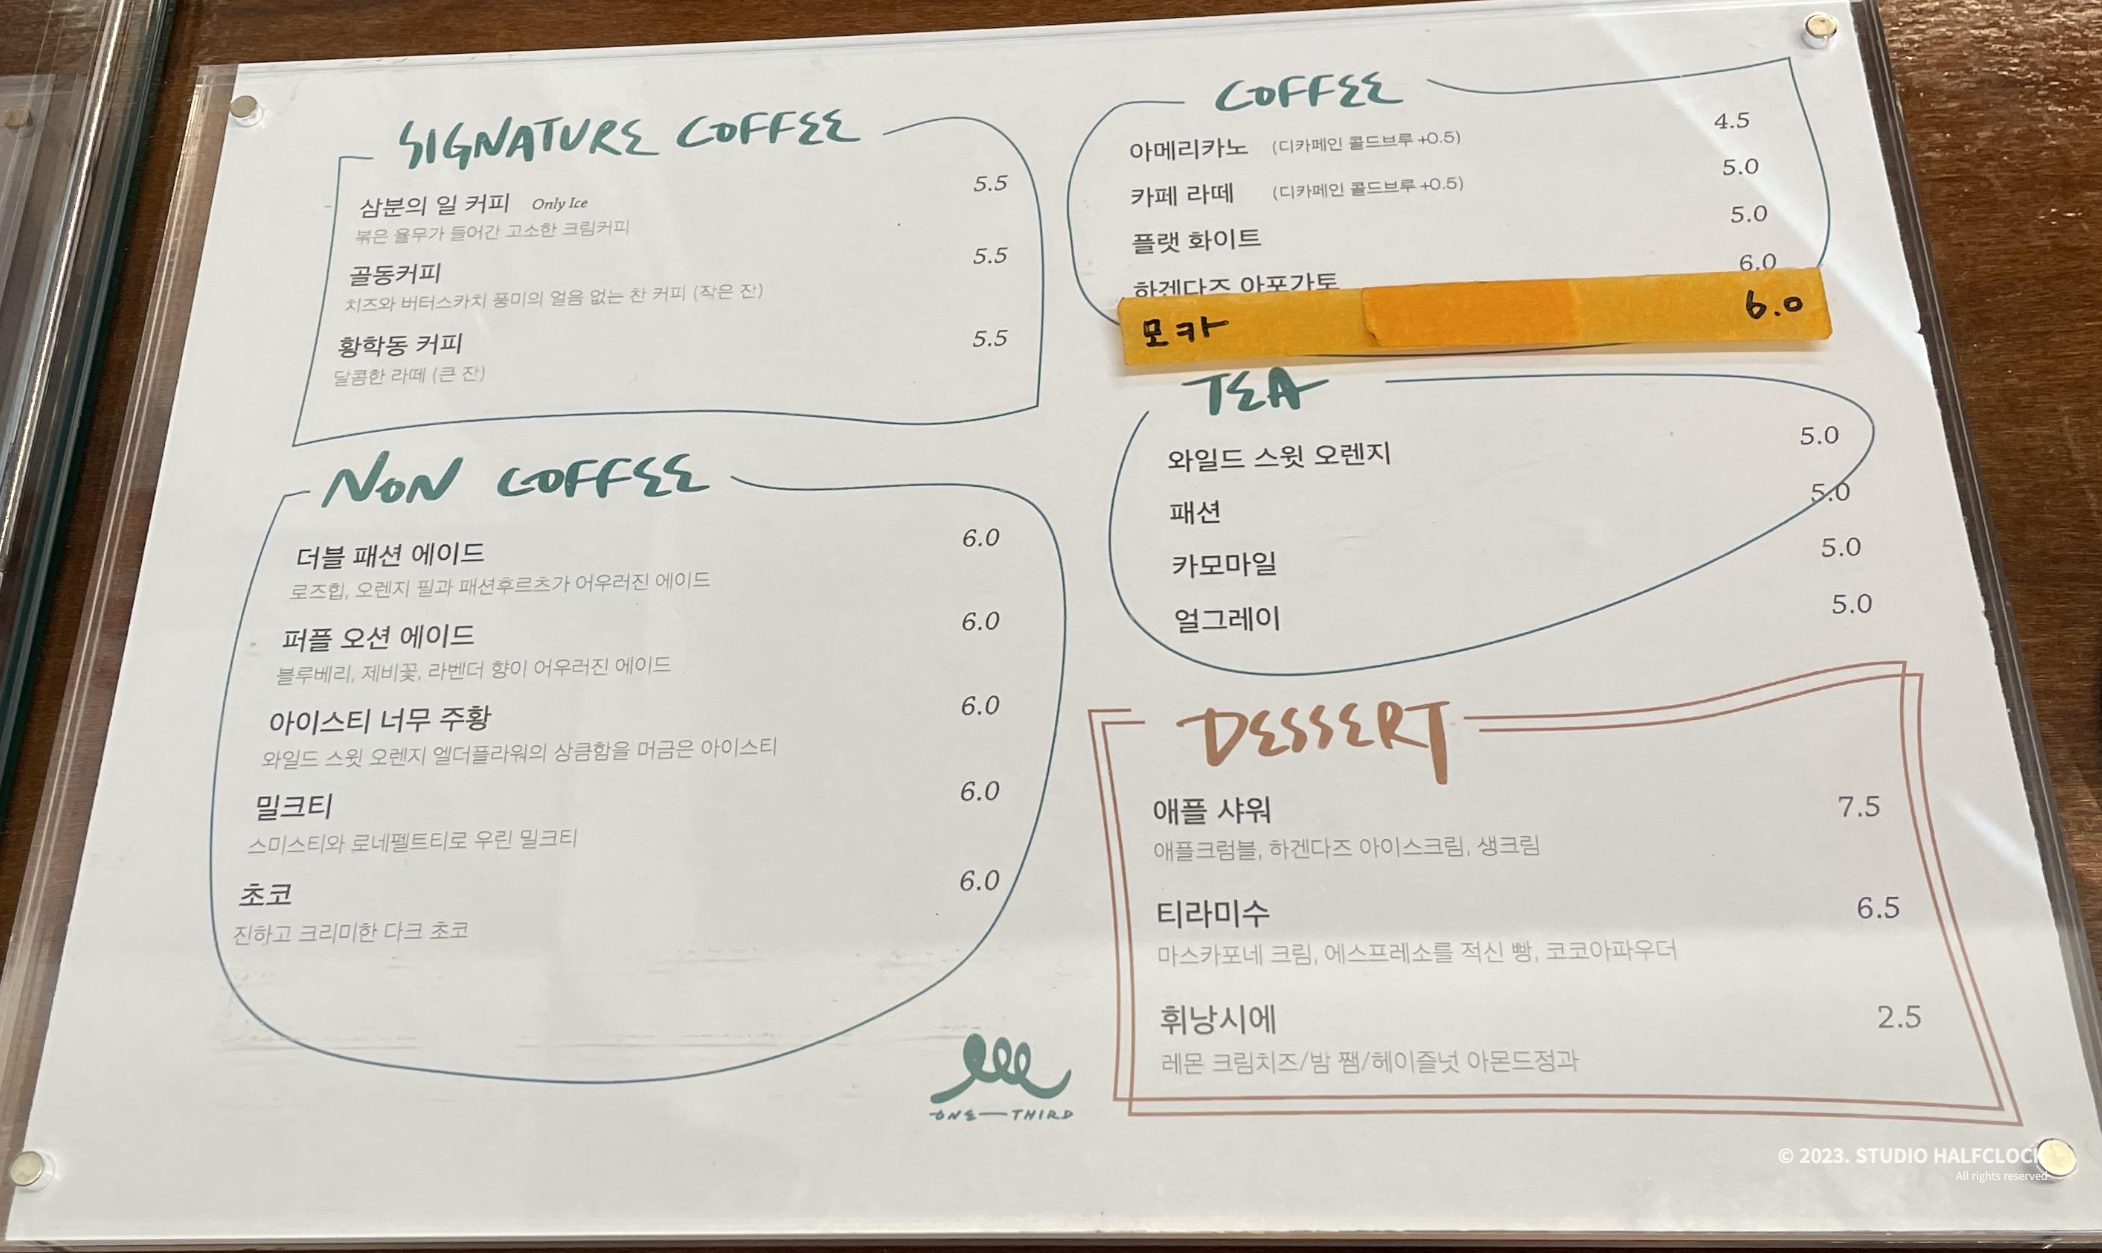 SIGNATURE COFFEE
삼분의 일 커피 Only Ice 5.5
볶은 율무가 들어간 고소한 크림커피
골동커피 5.5
치즈와 버터스카치 풍미의 얼음 없는 찬 커피 (작은 잔)
황학동 커피 5.5
달콤한 라떼 (큰 잔)
NON COFFEE
더블 패션 에이드 6.0
로즈힙, 오렌지 필과 패션후르츠가 어우러진 에이드
퍼플 오션 에이드 6.0
블루베리, 제비꽃, 라벤더 향이 어우러진 에이드
아이스티 너무 주황 6.0
와일드 스윗 오렌지 엘더플라워의 상큼함을 머금은 아이스티
밀크티 6.0
스미스티와 로네펠트티로 우린 밀크티
초코 6.0
진하고 크리미한 다크 초코
COFFEE
아메리카노 (디카페인 콜드브루 +0.5) 4.5
카페 라떼 (디카페인 콜드브루 +0.5) 5.0
플랫 화이트 5.0
하겐다즈 아포가토 6.0
모카 6.0
TEA
와일드 스윗 오렌지 5.0
패션 5.0
카모마일 5.0
얼그레이 5.0
DESSERT
애플 샤워 7.5
애플크럼블, 하겐다즈 아이스크림, 생크림
티라미수 6.5
마스카포네 크림, 에스프레소를 적신 빵, 코코아파우더
휘낭시에 2.5
레몬 크림치즈/밤 쨈/헤이즐넛 아몬드정과
ONE—THIRD
© 2023. STUDIO HALFCLOCK
All rights reserved